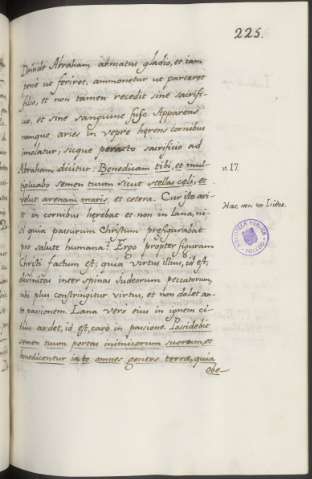 225.
Deinde Abraham armatus gladio, et iam
pene ut feriret, ammonetur ut parceret
filio, et non tamen recedit sine sacrifi-
cio, et sine sanguine fuso. Apparens
namque aries in vepre hęrens cornibus
imolatur, sicque peracto sacrificio ad
Abraham dicitur: Benedicam tibi, et mul-
tiplicabo semen tuum sicut stellas cęli, et
velut arenam maris, et cetera. Cur ita ari-
es in cornibus hęrebat et non in lana, ni-
si quia passurum Christum prefigurabat
pro salute humana? Ergo propter figuram
Christi factum est, quia virtus illius, id est,
divinitas inter spinas Judeorum peccatorum
plus constringitur virtus, et non dolet an-
te passionem. Lana vero eius in ignem
ardet, id est, caro in passione. Possidebit
semen tuum portas inimicorum suorum, et
benedicentur in te omnes gentes terrę, quia
obe-
v. 17.
Hac non in